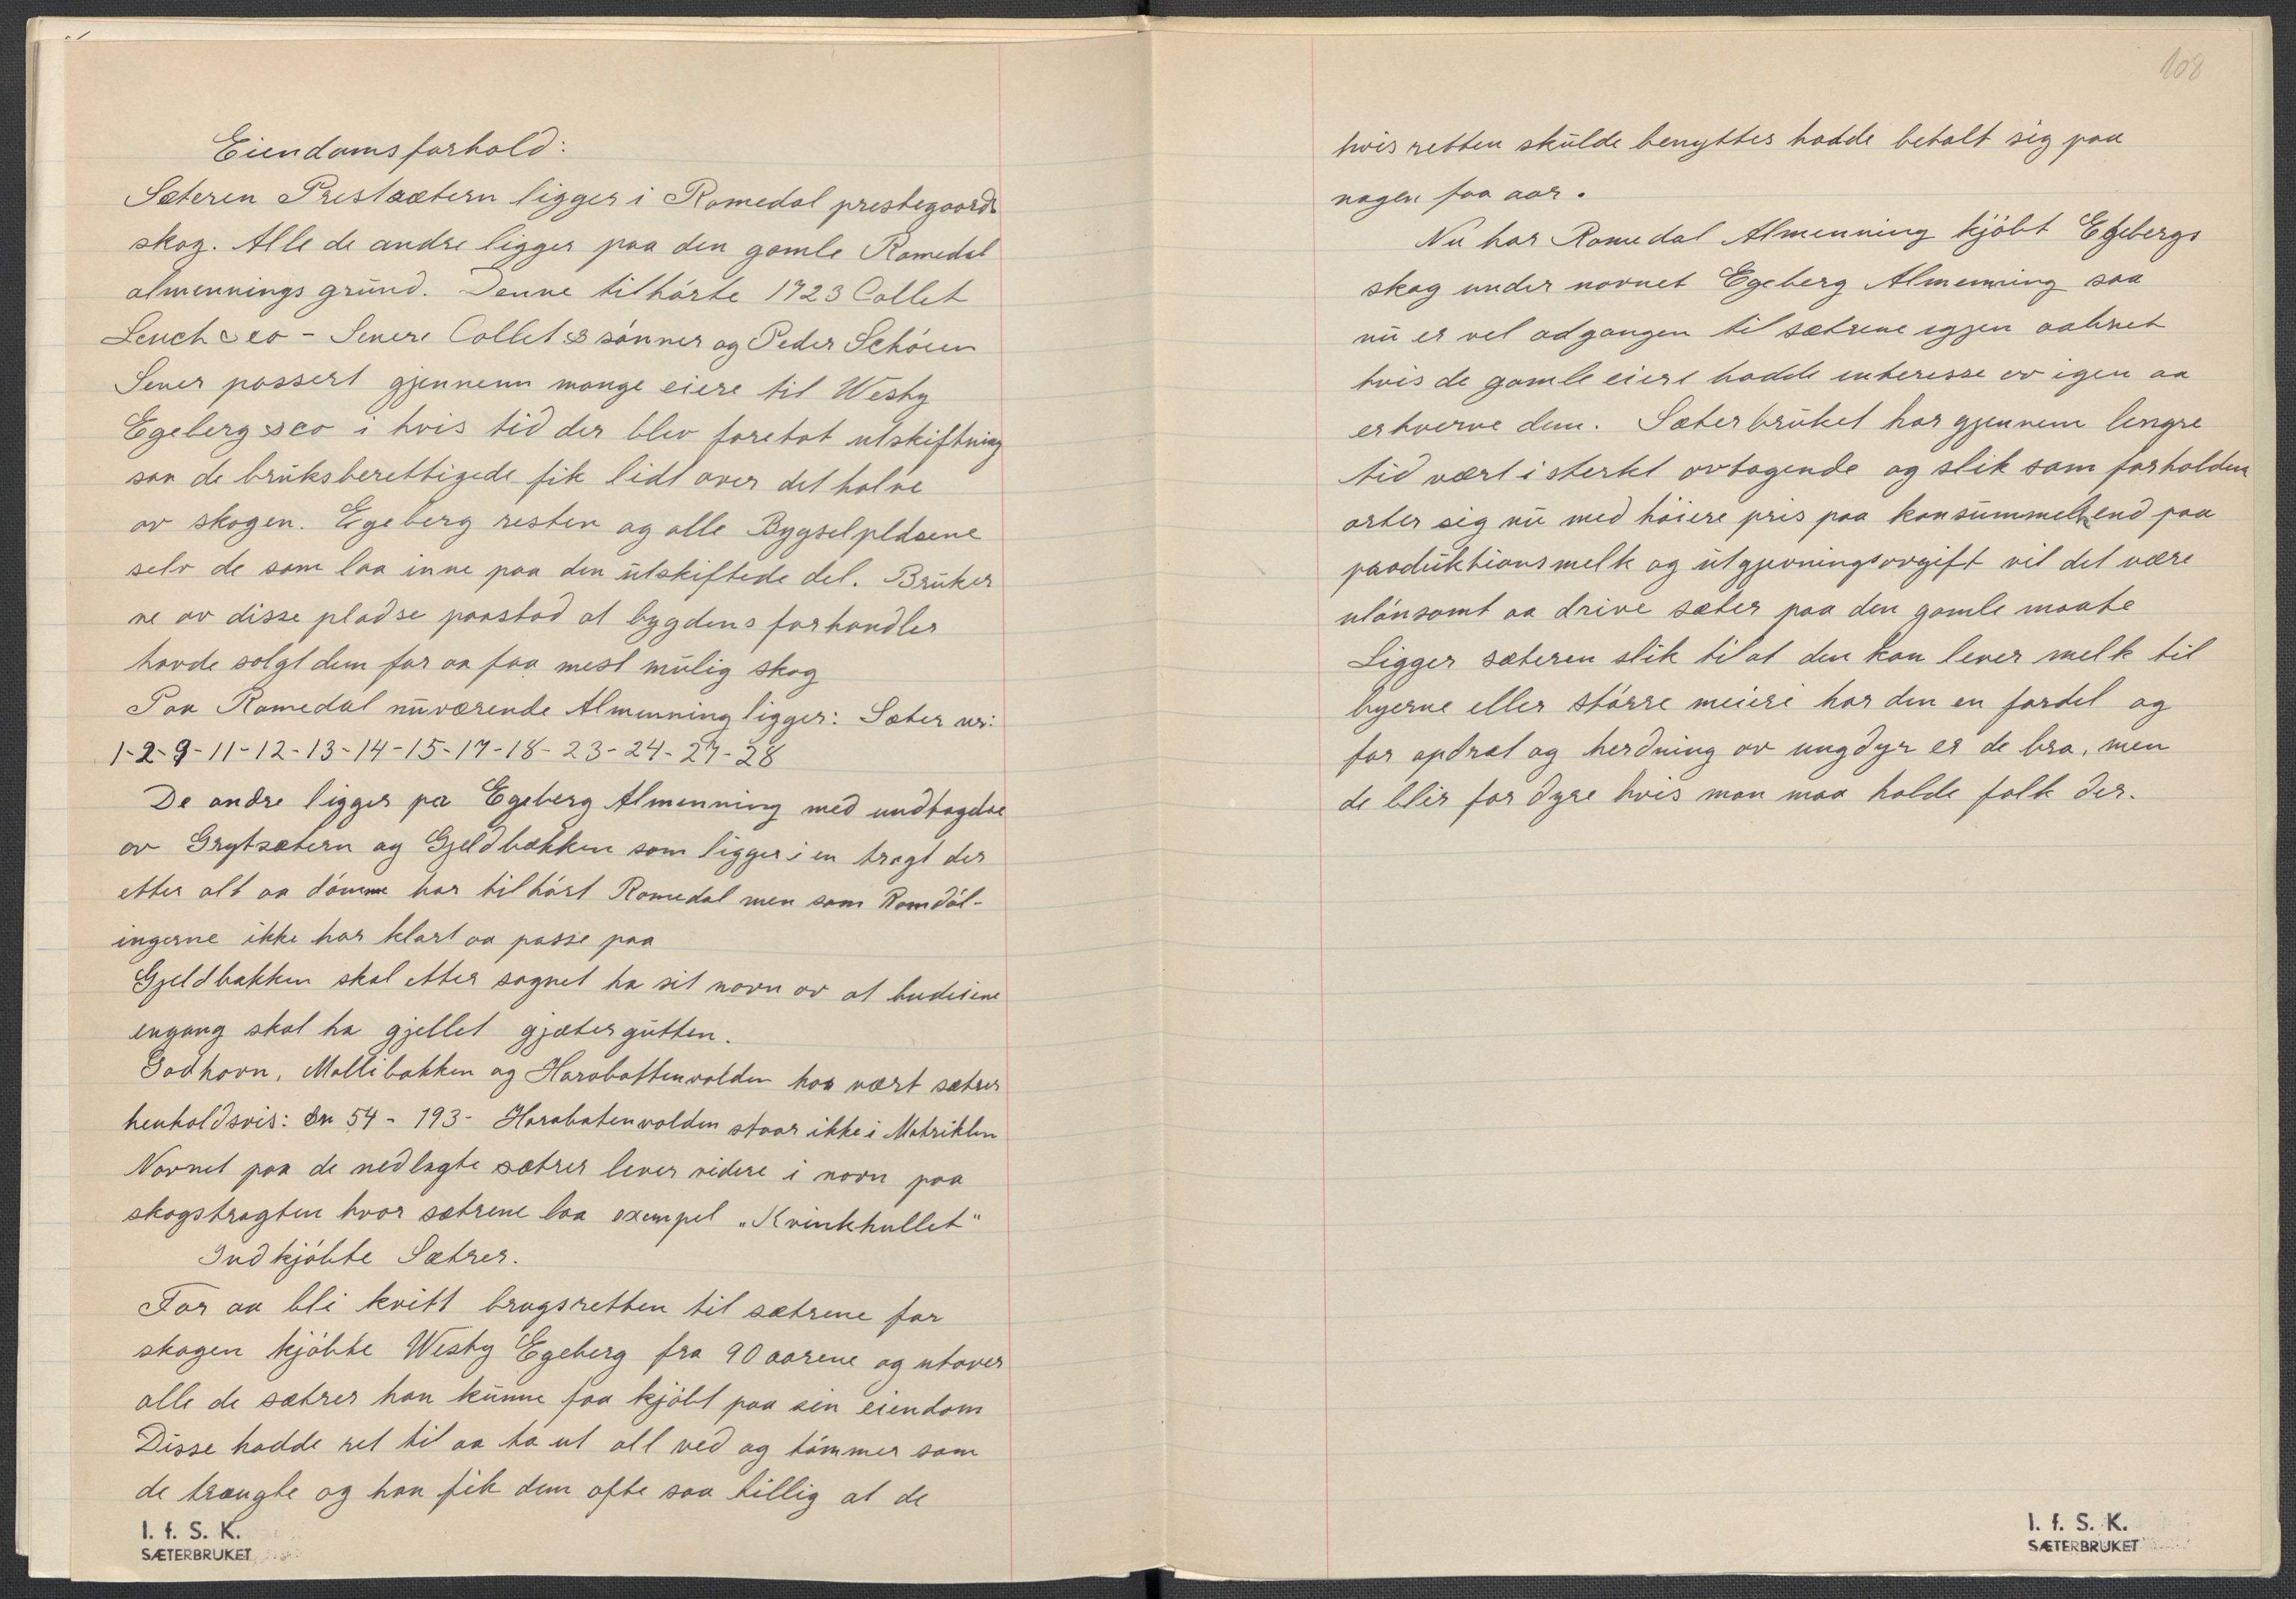 Eiendomsforhold:
Sæteren Prestsætern ligger i Romedal prestegaards
skog. Alle de andre ligger paa den gamle Romedal
almennings grund. Denne tilhørte 1723 Collet
Leuch & co - Senere Collet & sønner og Peder Schøien
Sener passert gjennem mange eiere til Westy
Egeberg & co i hvis tid der blev foretat utskiftning
saa de bruksberettigede fik lidt over det halve
av skogen. Egeberg resten og alle Bygselpladsene
selv de som laa inne paa den utskiftede del. Bruker
ne av disse pladse paastod at bygdens forhandler
havde solgt dem for aa faa mest mulig skog
Paa Romedal nuværende Almenning ligger: Sæter nr:
1-2-9-11-12-13-14-15-17-18-23-24-27-28
De andre ligger pa Egeberg Almenning med undtagelse
av Grytsætern og Gjeldbækken som ligger i en tragt der
etter alt aa dømme har tilhørt Romedal men som Romdøl-
ingerne ikke har klart aa passe paa
Gjeldbakken skal etter sagnet ha sit navn av at budeiene
engang skal ha gjellet gjætergutten.
Godhavn, Mollibakken og Harabattenvolden har vært sætrer
henholdsvis: Ln 54 - 193 - Harabatenvolden staar ikke i Matriklen
Navnet paa de nedlagte sætrer lever videre i navn paa
skogstragten hvor sætrene laa exempel „Kvinkhullet"
Indkjøbte Sætrer.
For aa bli kvitt brugsretten til sætrene for
skogen kjøbte Westy Egeberg fra 90 aarene og utover
alle de sætrer han kunne faa kjøbt paa sin eiendom
Disse hadde ret til aa ta ut all ved og tømmer som
de trængte og han fik dem ofte saa billig at de
I. f. S. K.
SÆTERBRUKET
108
hvis retten skulde benyttes hadde betalt sig paa
nogen faa aar.
Nu har Romedal Almenning kjøbt Egebergs
skog under navnet Egeberg Almenning saa
nu er vel adgangen til sætrene igjen aabnet
hvis de gamle eiere hadde interesse av igen aa
erhverve dem. Sæterbruket har gjennem lengre
tid vært i sterkt avtagende og slik som forholden
arter sig nu med høiere pris paa konsummelk end paa
produktionsmelk og utgjevningsavgift vil det være
ulønsomt aa drive sæter paa den gamle maate
Ligger sæteren slik til at den kan lever melk til
byerne eller større meieri har den en fordel og
for opdræt og herdning av ungdyr er de bra, men
de blir for dyre hvis man maa holde folk der.
I. f. S. K.
SÆTERBRUKET